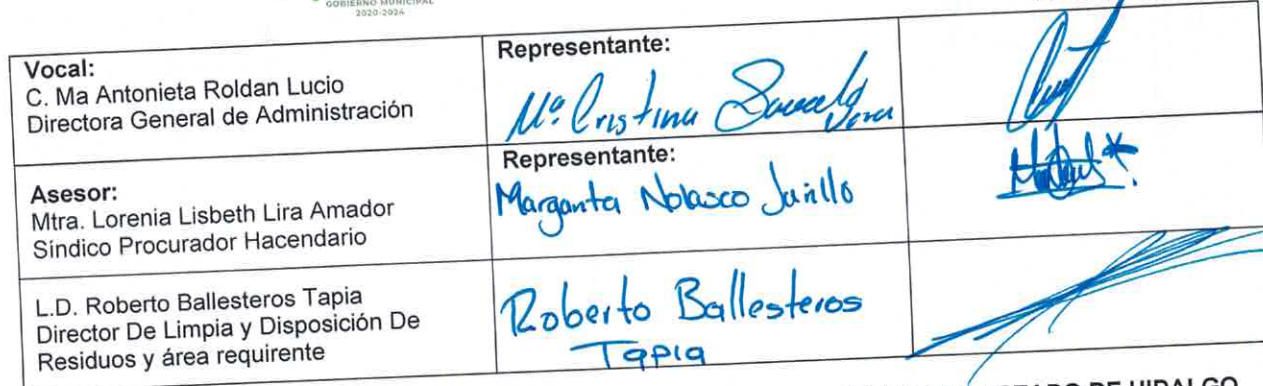 GOBIERNO MUNICIPAL
2020-2024
Vocal:
C. Ma Antonieta Roldan Lucio
Directora General de Administración
Representante:
Mª Cristina
Vera
Asesor:
Mtra. Lorenia Lisbeth Lira Amador
Síndico Procurador Hacendario
Representante:
Margarita Nolasco
L.D. Roberto Ballesteros Tapia
Director De Limpia y Disposición De
Residuos y área requirente
Roberto Ballesteros
Tapia
ESTADO DE HIDALGO